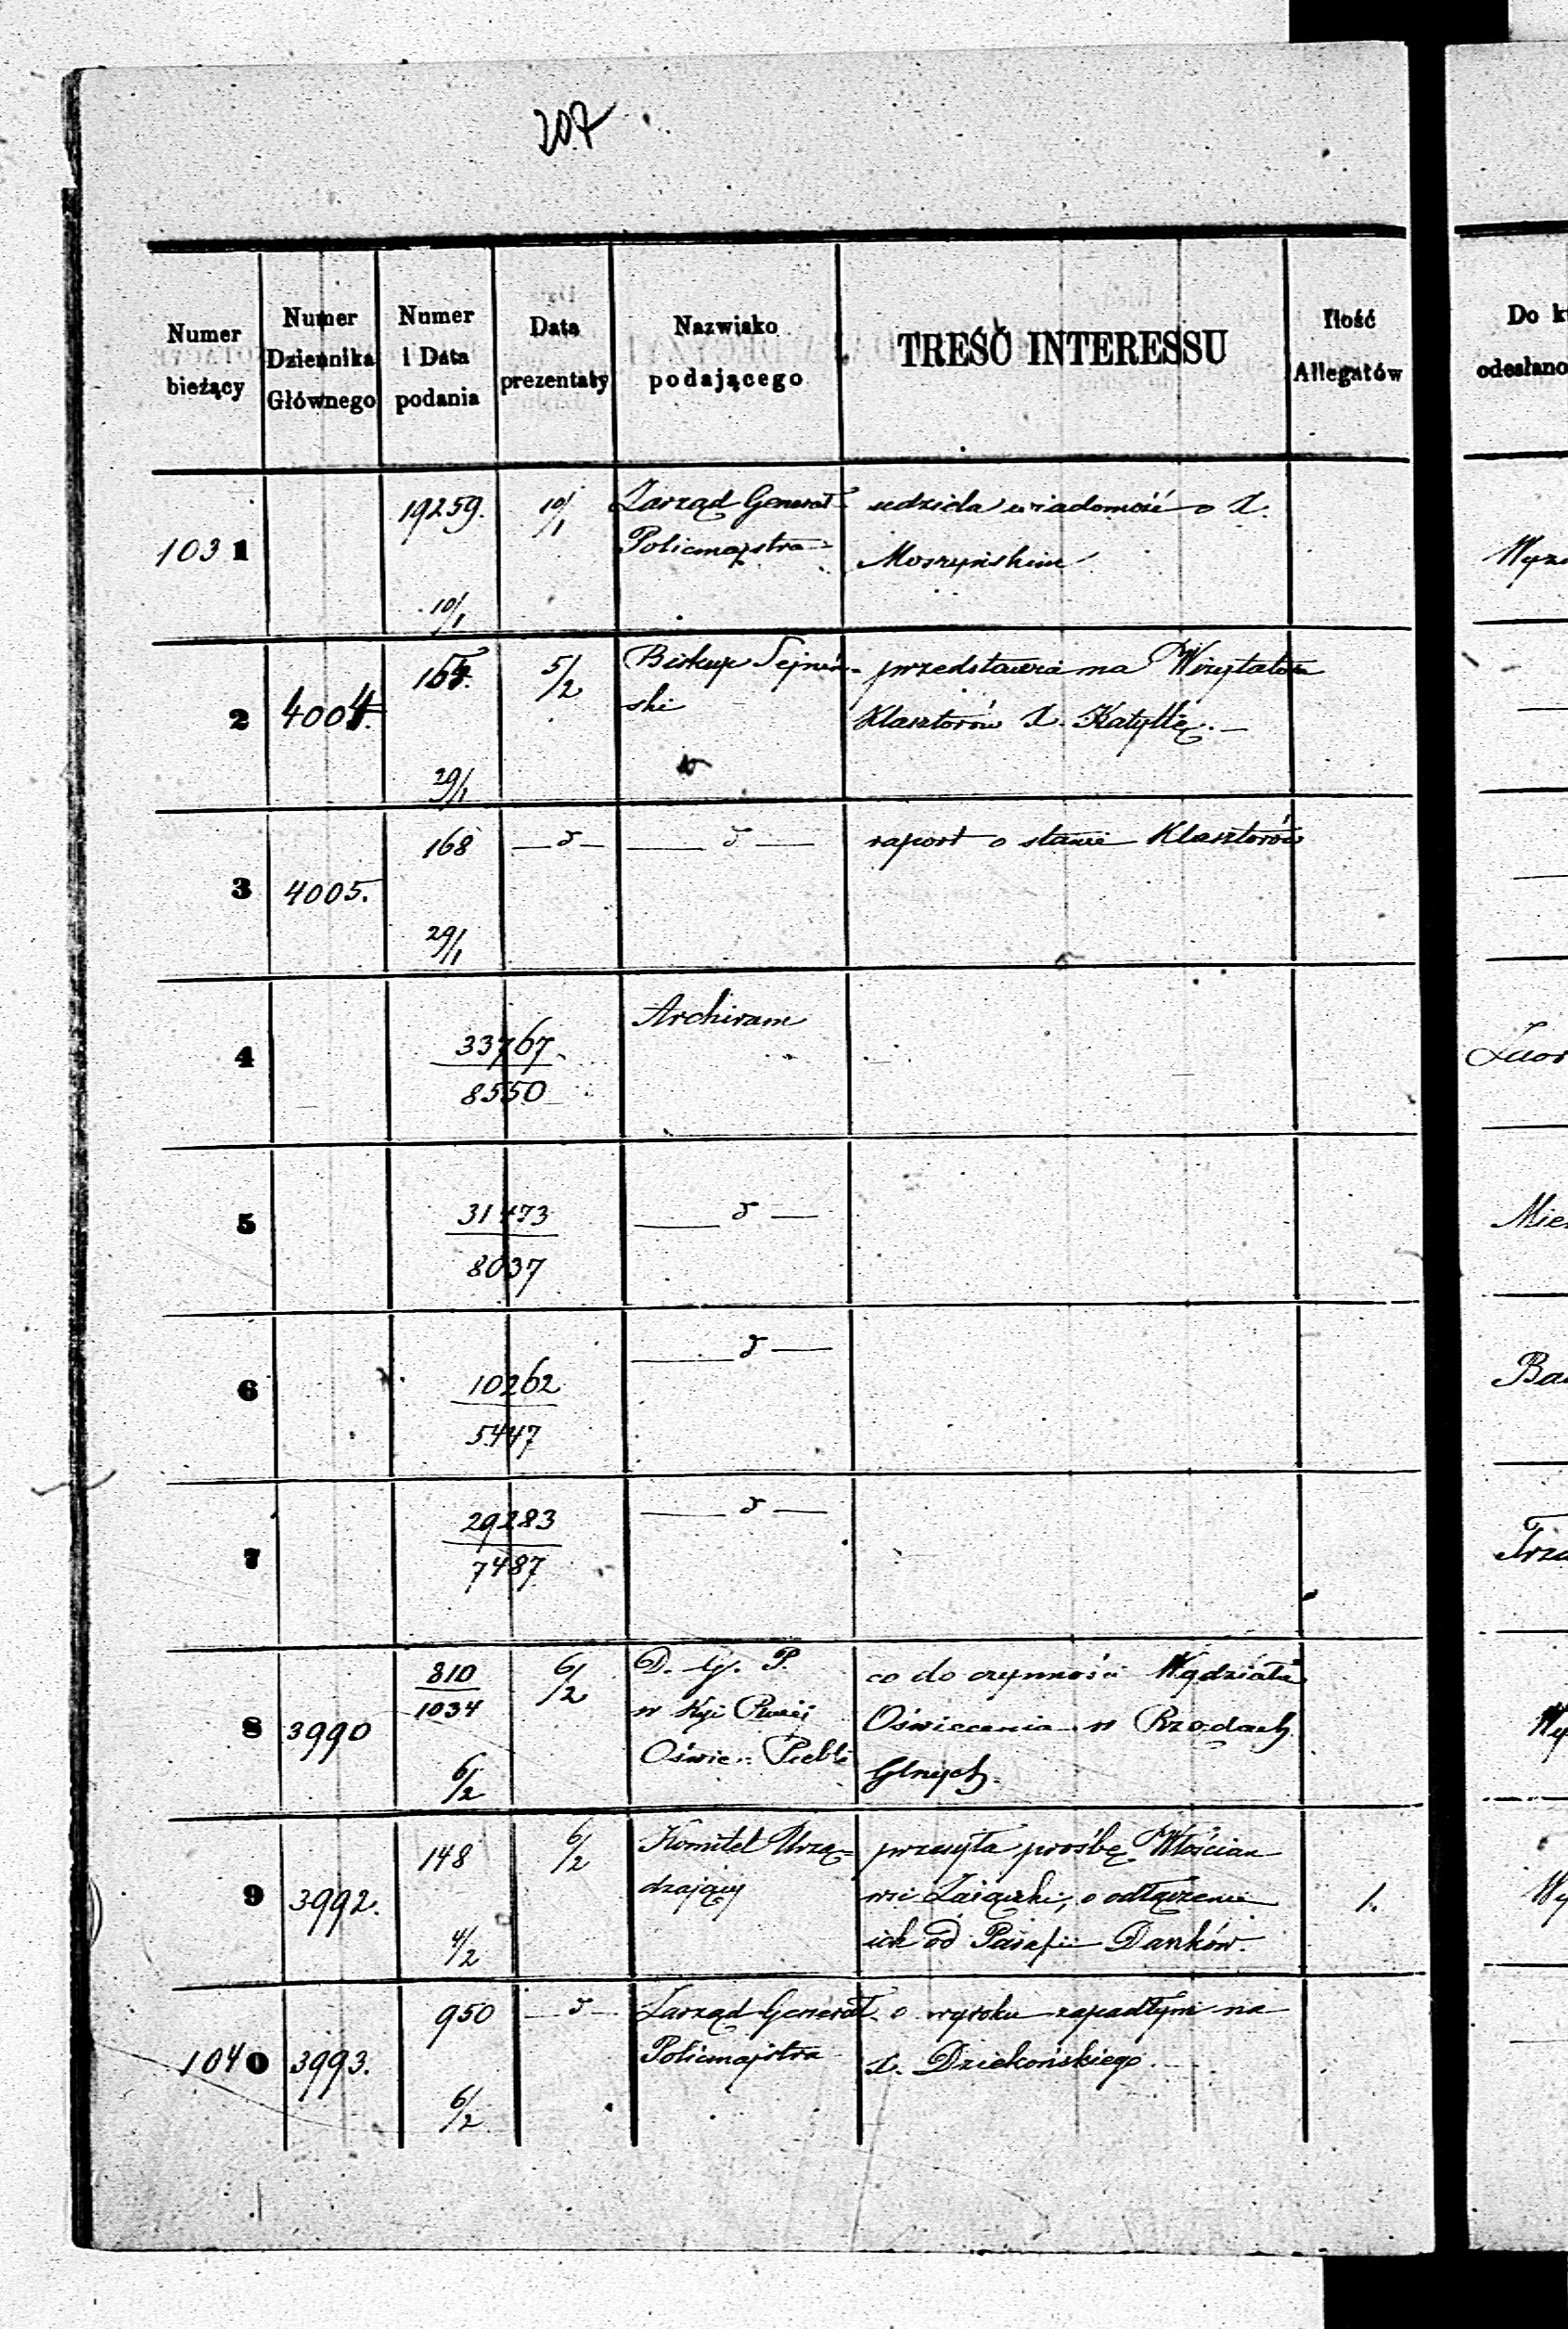 207
Numer bieżący
Numer Dziennika Głównego
Numer i Data podania
Data prezentaty
Nazwisko podającego
TREŚĆ INTERESSU
Ilość Allegatów
Do k
odesłano
1031 19259. 10/1 Zarząd Generał udziela wiadomość o X.
Policmajstra Moszyńskim
10/1
Wyzn
2 4004. 5/2 Biskup Sejneń- przedstawia na Wizytatora
ski Klasztorów X. Katyllę.
29/1
3 4005. 168 — d — — d — raport o stanie Klasztorów
29/1
4 33767 Archiwum
8550
5 31473 — d —
8037
Mie
6 10262 — d —
5447
Ba
7 29283 — d —
7487
8 3990 810 6/2 D. G. P. co do czynności Wydziału
1034 w Oświecenia w Rządach
Oświe. Publi Glnych.
6/2
Wy
9 3992. 148 6/2 Komitet Urzą= przesyła prośbę Włościan
dzający wsi o odłączenie 1.
4/2 ich od Parafii Danków.
Wy
1040 3993. 950 — d — Zarząd Generał o wyroku zapadłym na
Policmajstra X. Dziekońskiego.
6/2